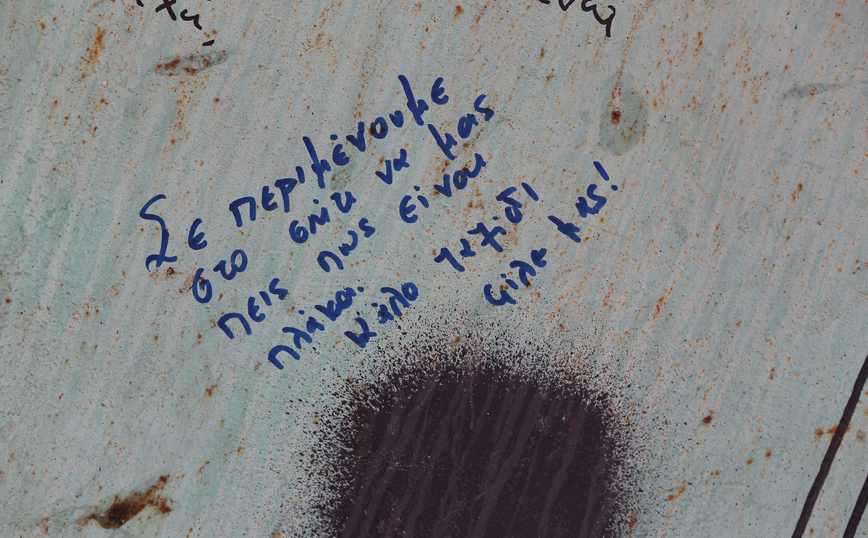 Σε περιμένουμε
στο σπίτι να μας
πεις πως είναι
πλάκα.
Καλο ταξίδι
φίλε μας!